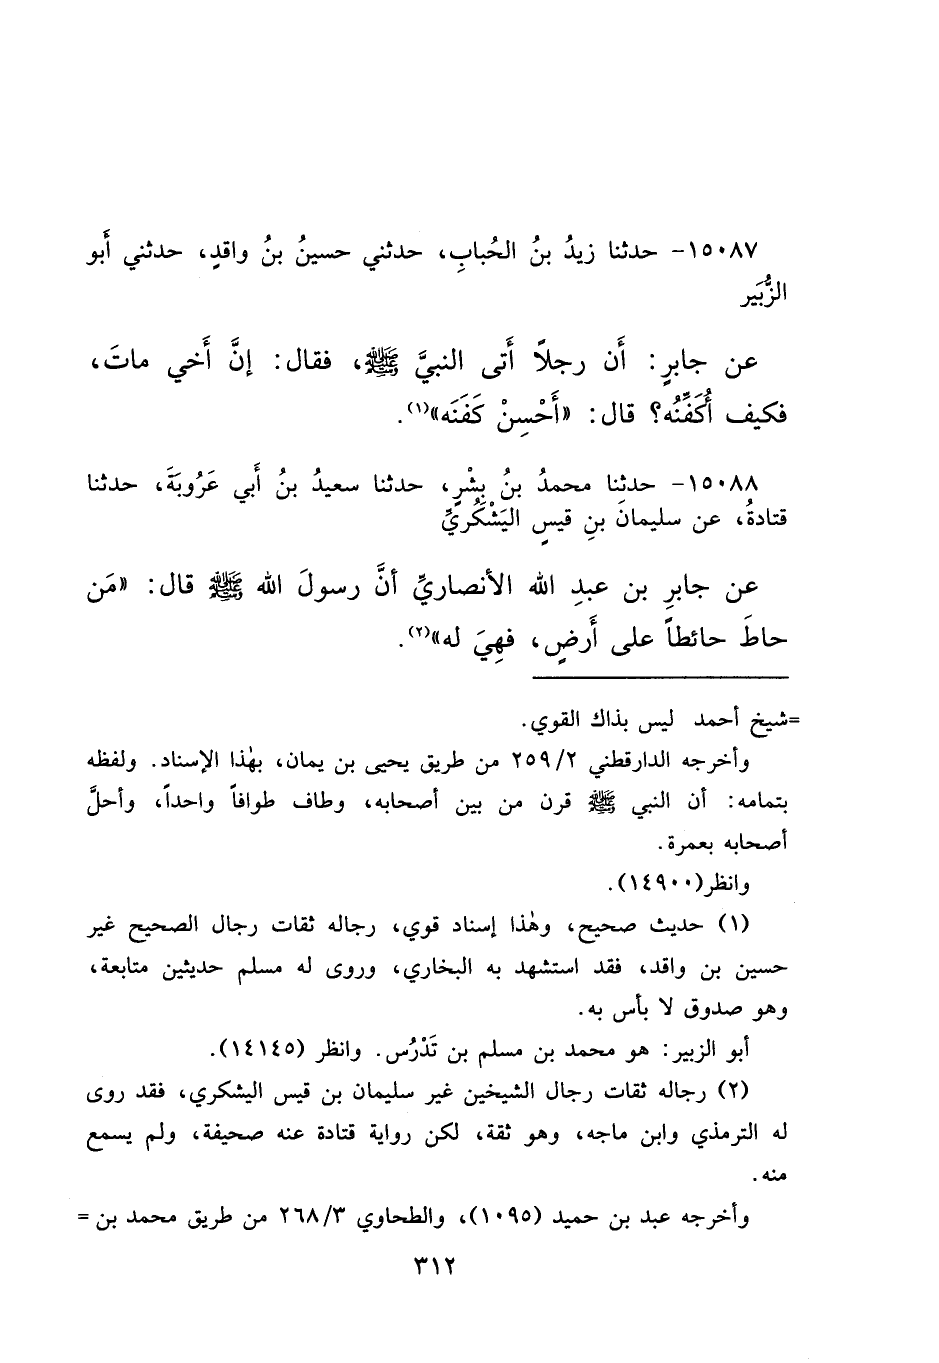 ١٥٠٨٧- حدثنا زيدُ بنُ الحُبابِ، حدثني حسينُ بنُ واقدٍ، حدثني أَبو
الزُّبَير
عن جابرٍ: أَن رجلاً أَتى النبيَّ ﷺ، فقال: إنَّ أَخي ماتَ،
فكيف أُكَفِّنُه؟ قال: «أَحْسِنْ كَفَنَه»(١).
١٥٠٨٨- حدثنا محمدُ بنُ بِشْرٍ، حدثنا سعيدُ بنُ أَبي عَرُوبَةَ، حدثنا
قتادةُ، عن سليمانَ بنِ قيسٍ اليَشْكُريِّ
عن جابرِ بن عبدِ الله الأنصاريِّ أنَّ رسولَ الله ﷺ قال: «مَن
حاطَ حائطاً على أَرضٍ، فهِيَ له»(٢).
=شيخ أحمد ليس بذاك القوي.
وأخرجه الدارقطني ٢٥٩/٢ من طريق يحيى بن يمان، بهٰذا الإسناد. ولفظه
بتمامه: أن النبي ﷺ قرن من بين أصحابه، وطاف طوافاً واحداً، وأحلَّ
أصحابه بعمرة.
وانظر(١٤٩٠٠).
(١) حديث صحيح، وهٰذا إسناد قوي، رجاله ثقات رجال الصحيح غير
حسين بن واقد، فقد استشهد به البخاري، وروى له مسلم حديثين متابعة،
وهو صدوق لا بأس به.
أبو الزبير: هو محمد بن مسلم بن تَدْرُس. وانظر (١٤١٤٥).
(٢) رجاله ثقات رجال الشيخين غير سليمان بن قيس اليشكري، فقد روى
له الترمذي وابن ماجه، وهو ثقة، لكن رواية قتادة عنه صحيفة، ولم يسمع
منه.
وأخرجه عبد بن حميد (١٠٩٥)، والطحاوي ٢٦٨/٣ من طريق محمد بن =
٣١٢